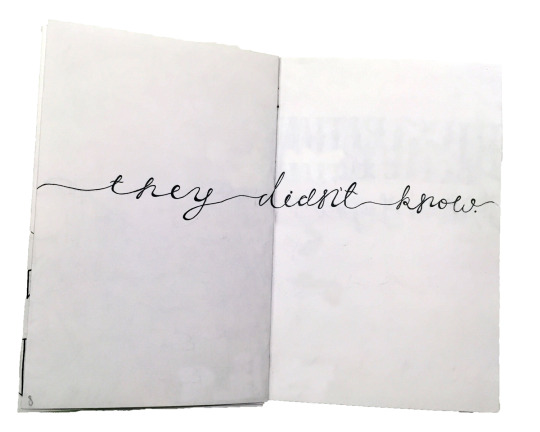 they didn't know.